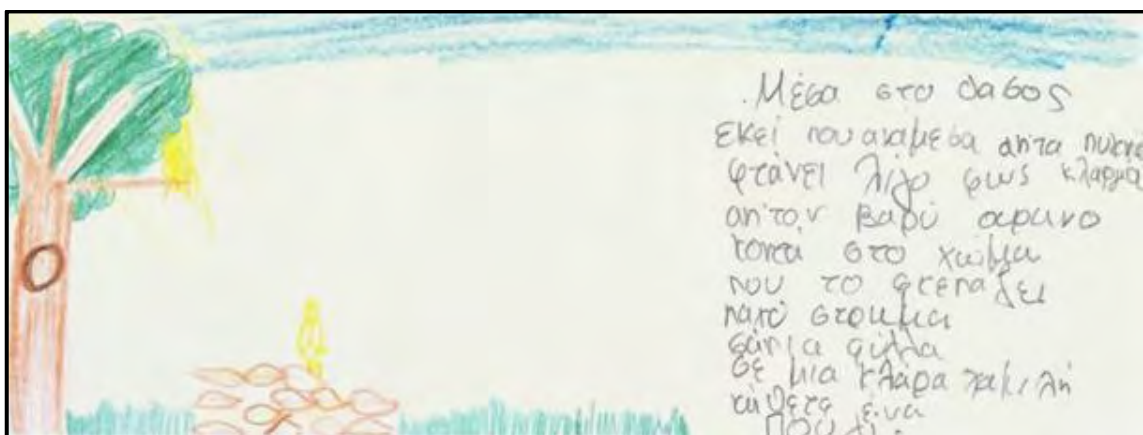 Μέσα στο δασος
εκεί που αναμεσα απ'τα πυκνα
φτάνει λίγο φως
απ'τον βαρύ
κοντά στο χώμα
που το σκεπαζει
παχύ στρωμα
σάπια φύλλα
σε μια κλάρα χαμιλή
κάθετε ένα
Πουλί.